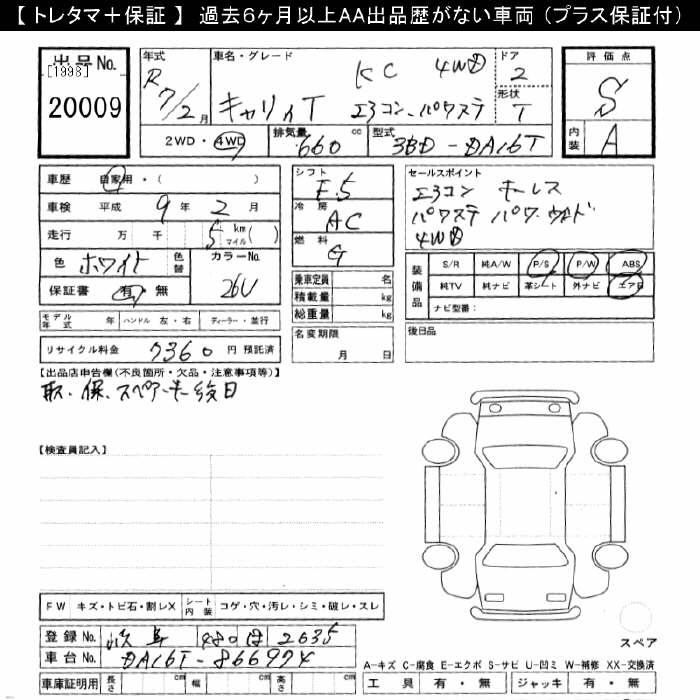 【 トレタマ＋保証 】 過去６ヶ月以上AA出品歴がない車両 （プラス保証付）
出 品 No.
[1998]
20009
年式
R
7/2月
車名・グレード
KC 4WD
キャリィT エアコン、パワステ
ドア
2
形状
T
評 価 点
S
内装
A
2WD・4WD
排気量
660 cc
型式
3BD-DA16T
車歴 自家用・( )
車検 平成 9 年 2 月
走行 万 千 5 km マイル ( )
色 ホワイト 色替
カラーNo.
26U
保証書 有・無
シフト
F.5
冷房
AC
燃料
G
セールスポイント
エアコン キーレス
パワステ パワーウィンド
4WD
装備品
S/R 純A/W P/S P/W ABS
純TV 純ナビ 革シート 外ナビ エアB
ナビ型番：
乗車定員 名
積載量 kg
総重量 kg
モデル年式 年 ハンドル 左・右 ディーラー・並行
名変期限
月 日
後日品
リサイクル料金 7360 円 預託済
【出品店申告欄(不良箇所・欠品・注意事項等)】
取、保、スペアーキー後日
【検査員記入】
FW キズ・トビ石・割レX シート内装 コゲ・穴・汚レ・シミ・破レ・スレ
登録 No. 480 2635
車台 No. DA16T-866974
スペア
A-キズ C-腐食 E-エクボ S-サビ U-凹ミ W-補修 XX-交換済
車庫証明用 長さ cm 幅 cm 高さ cm
工 具 有・無 ジャッキ 有・無